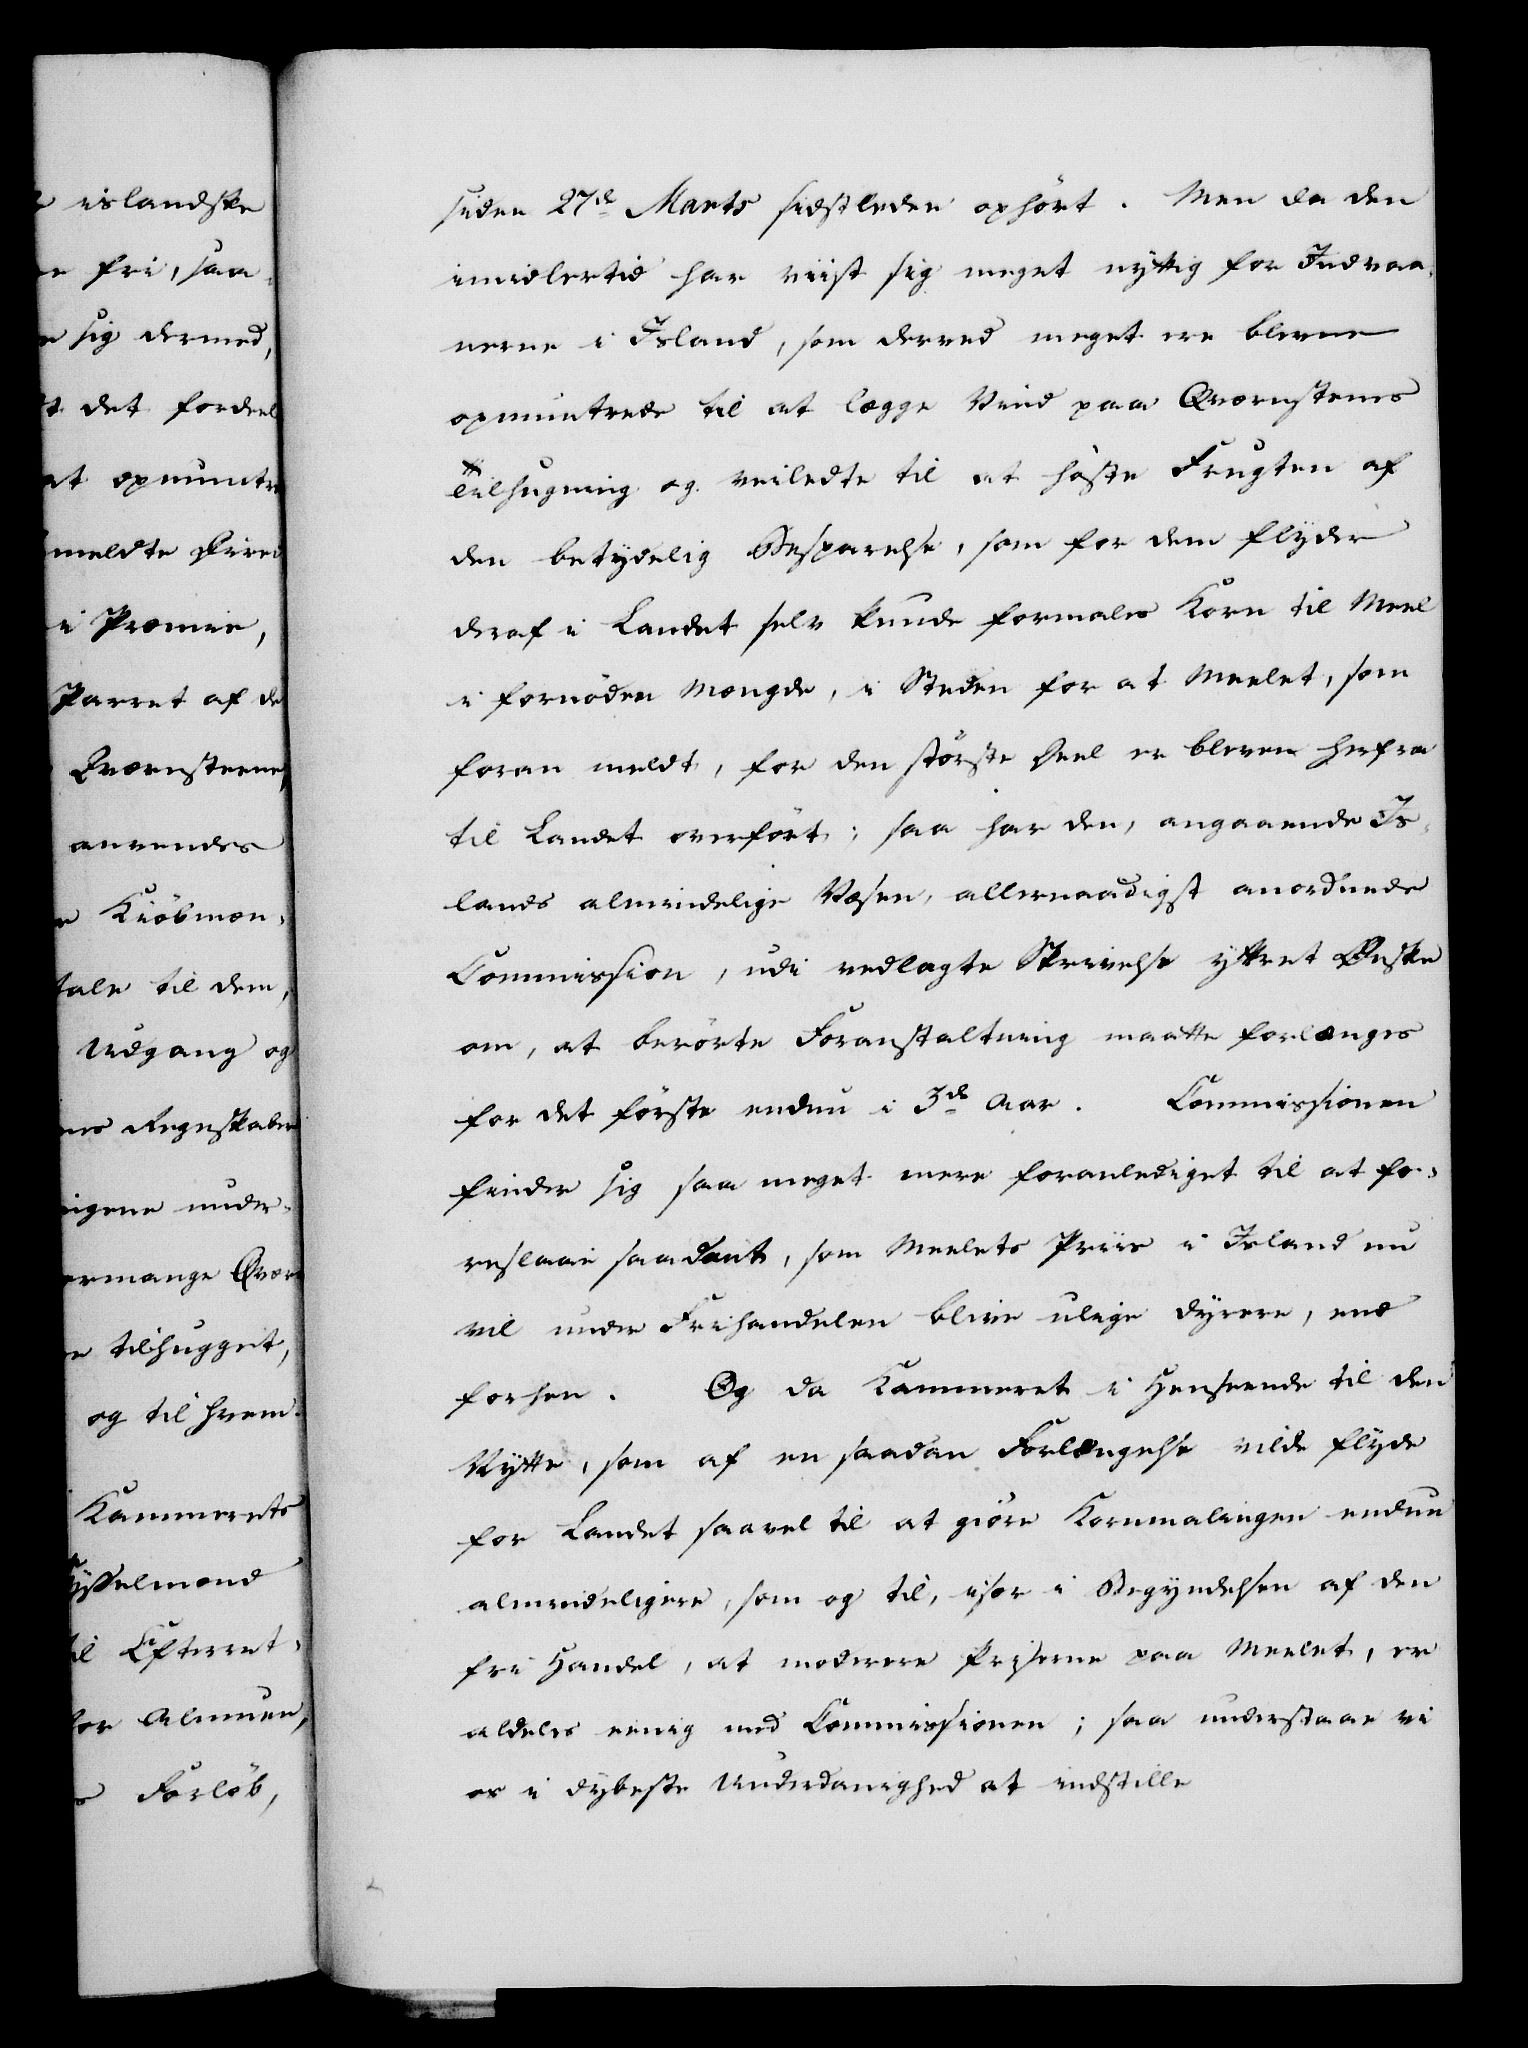 islandske
fri, saa-
sig dermed,
det fordeel
at opmuntre
meldte
i Præmie,
Parret af de
Qværnsteene,
anvendes
Kiöbmæn-
tale til dem,
Udgang og
Regnskaber
under-
mange Qvær
tilhugget,
og til hvem.
Kammerets
Sysselmænd
til Efterret-
for Almuen,
Forlöb,
siden 27de Marts sidstleden ophört. Men da den
imidlertid har viist sig meget nyttig for Indvaa-
nerne i Island, som derved meget ere blevne
opmuntrede til at lægge Vind paa Qværnstenes
Tilhugning og veiledte til at höste Frugten af
den betydelig Besparelse, som for dem flyder
deraf i Landet selv kunde formales Korn til Meel
i fornöden Mængde, i Steden for at Meelet, som
foran meldt, for den störste Deel er bleven herfra
til Landet overfört; saa har den, angaaende Is-
lands almindelige Væsen, allernaadigst anordnede
Commission, udi vedlagte Skrivelse yttret Önske
om, at berörte Foranstaltning maatte forlænges
for det förste endnu i 3de Aar. Commissionen
finder sig saa meget mere foranlediget til at fo-
reslaae saadant, som Meelets Priis i Island nu
vil under Frihandelen blive ulige dyrere, end
forhen. Og da Kammeret i Henseende til den
Nytte, som af en saadan Forlængelse vilde flyde
for Landet saavel til at giöre Kornmalingen endnu
almindeligere, som og til, især i Begyndelsen af den
fri Handel, at moderere Priserne paa Meelet, er
aldeles eenig med Commissionen; saa understaae vi
os i dybeste Underdanighed at indstille